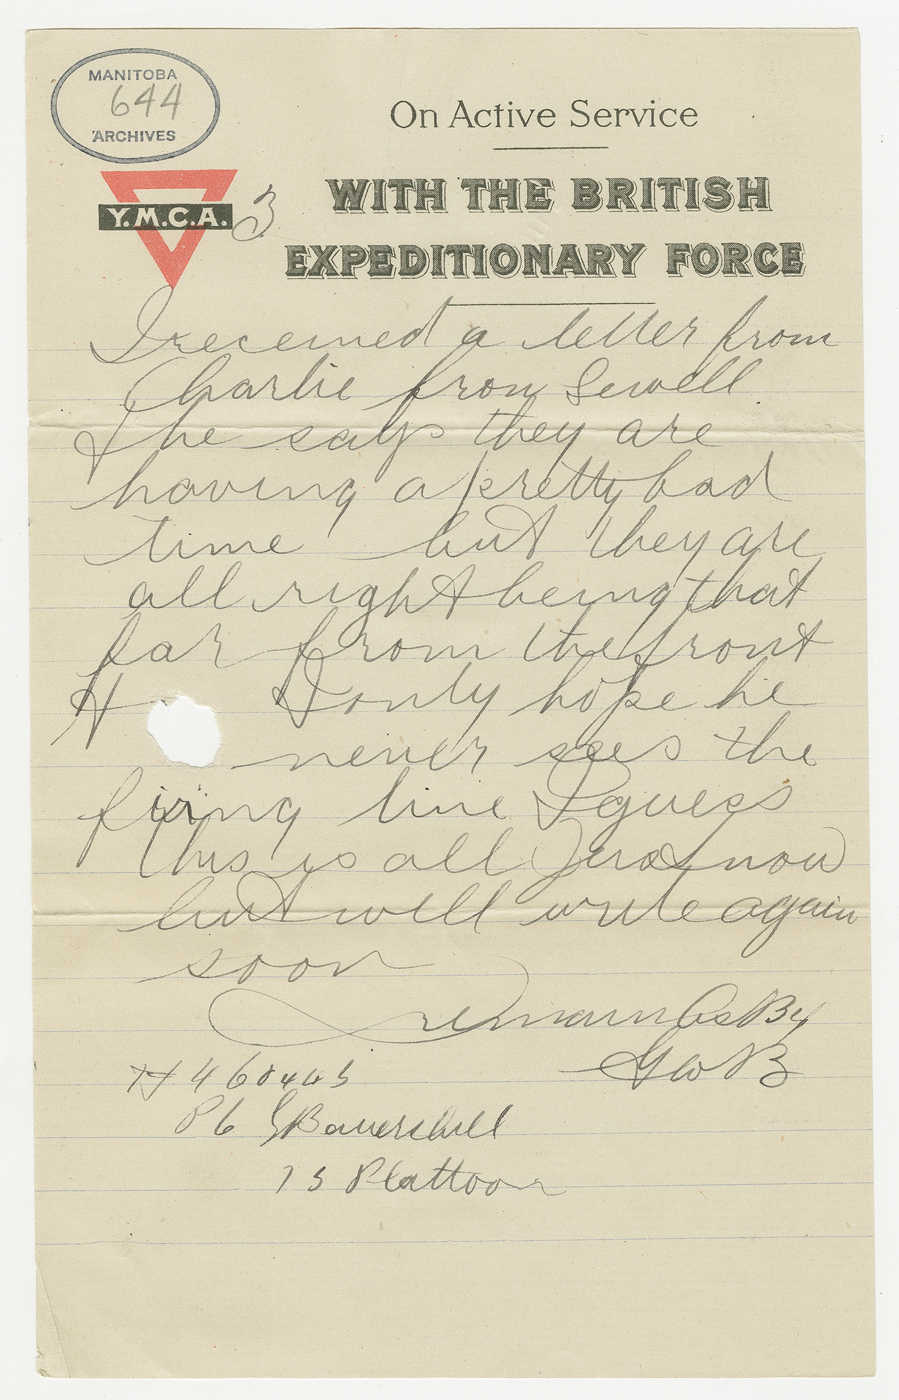 MANITOBA
644
ARCHIVES
On Active Service
Y.M.C.A.
3
WITH THE BRITISH
EXPEDITIONARY FORCE
I received a letter from
Charlie from Sewell
& he says they are
having a pretty bad
time but they are
all right being that
far from the front
& I only hope he
never sees the
firing line I guess
this is all for now
but will write again
soon
I remain as By
GWB
Pte G Bowershell
13 Plattoon